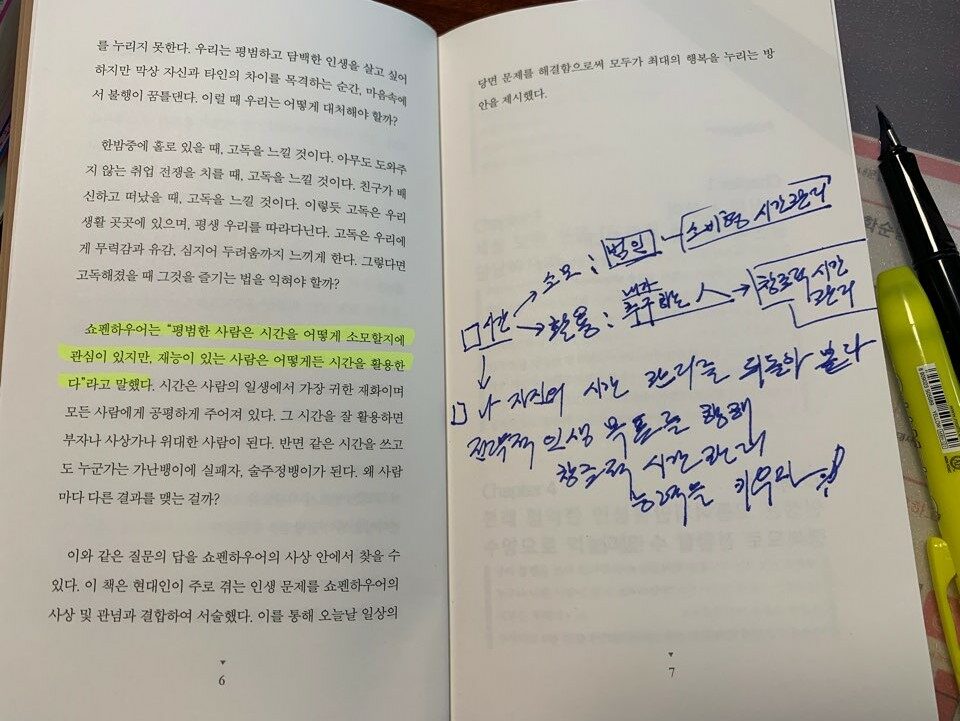 를 누리지 못한다. 우리는 평범하고 담백한 인생을 살고 싶어
하지만 막상 자신과 타인의 차이를 목격하는 순간, 마음속에
서 불행이 꿈틀댄다. 이럴 때 우리는 어떻게 대처해야 할까?
한밤중에 홀로 있을 때, 고독을 느낄 것이다. 아무도 도와주
지 않는 취업 전쟁을 치를 때, 고독을 느낄 것이다. 친구가 배
신하고 떠났을 때, 고독을 느낄 것이다. 이렇듯 고독은 우리
생활 곳곳에 있으며, 평생 우리를 따라다닌다. 고독은 우리에
게 무력감과 유감, 심지어 두려움까지 느끼게 한다. 그렇다면
고독해졌을 때 그것을 즐기는 법을 익혀야 할까?
쇼펜하우어는 “평범한 사람은 시간을 어떻게 소모할지에
관심이 있지만, 재능이 있는 사람은 어떻게든 시간을 활용한
다”라고 말했다. 시간은 사람의 일생에서 가장 귀한 재화이며
모든 사람에게 공평하게 주어져 있다. 그 시간을 잘 활용하면
부자나 사상가나 위대한 사람이 된다. 반면 같은 시간을 쓰고
도 누군가는 가난뱅이에 실패자, 술주정뱅이가 된다. 왜 사람
마다 다른 결과를 맺는 걸까?
이와 같은 질문의 답을 쇼펜하우어의 사상 안에서 찾을 수
있다. 이 책은 현대인이 주로 겪는 인생 문제를 쇼펜하우어의
사상 및 관념과 결합하여 서술했다. 이를 통해 오늘날 일상의
6
당면 문제를 해결함으로써 모두가 최대의 행복을 누리는 방
안을 제시했다.
소모 : 범인 - 소비형 시간관리
시간
활용 : 내가 추구하는 人 → 창조적 시간
관리
나 자신의 시간 관리를 뒤돌아 본다
전략적 인생 목표를 향해
창조적 시간관리
능력을 키우자
7